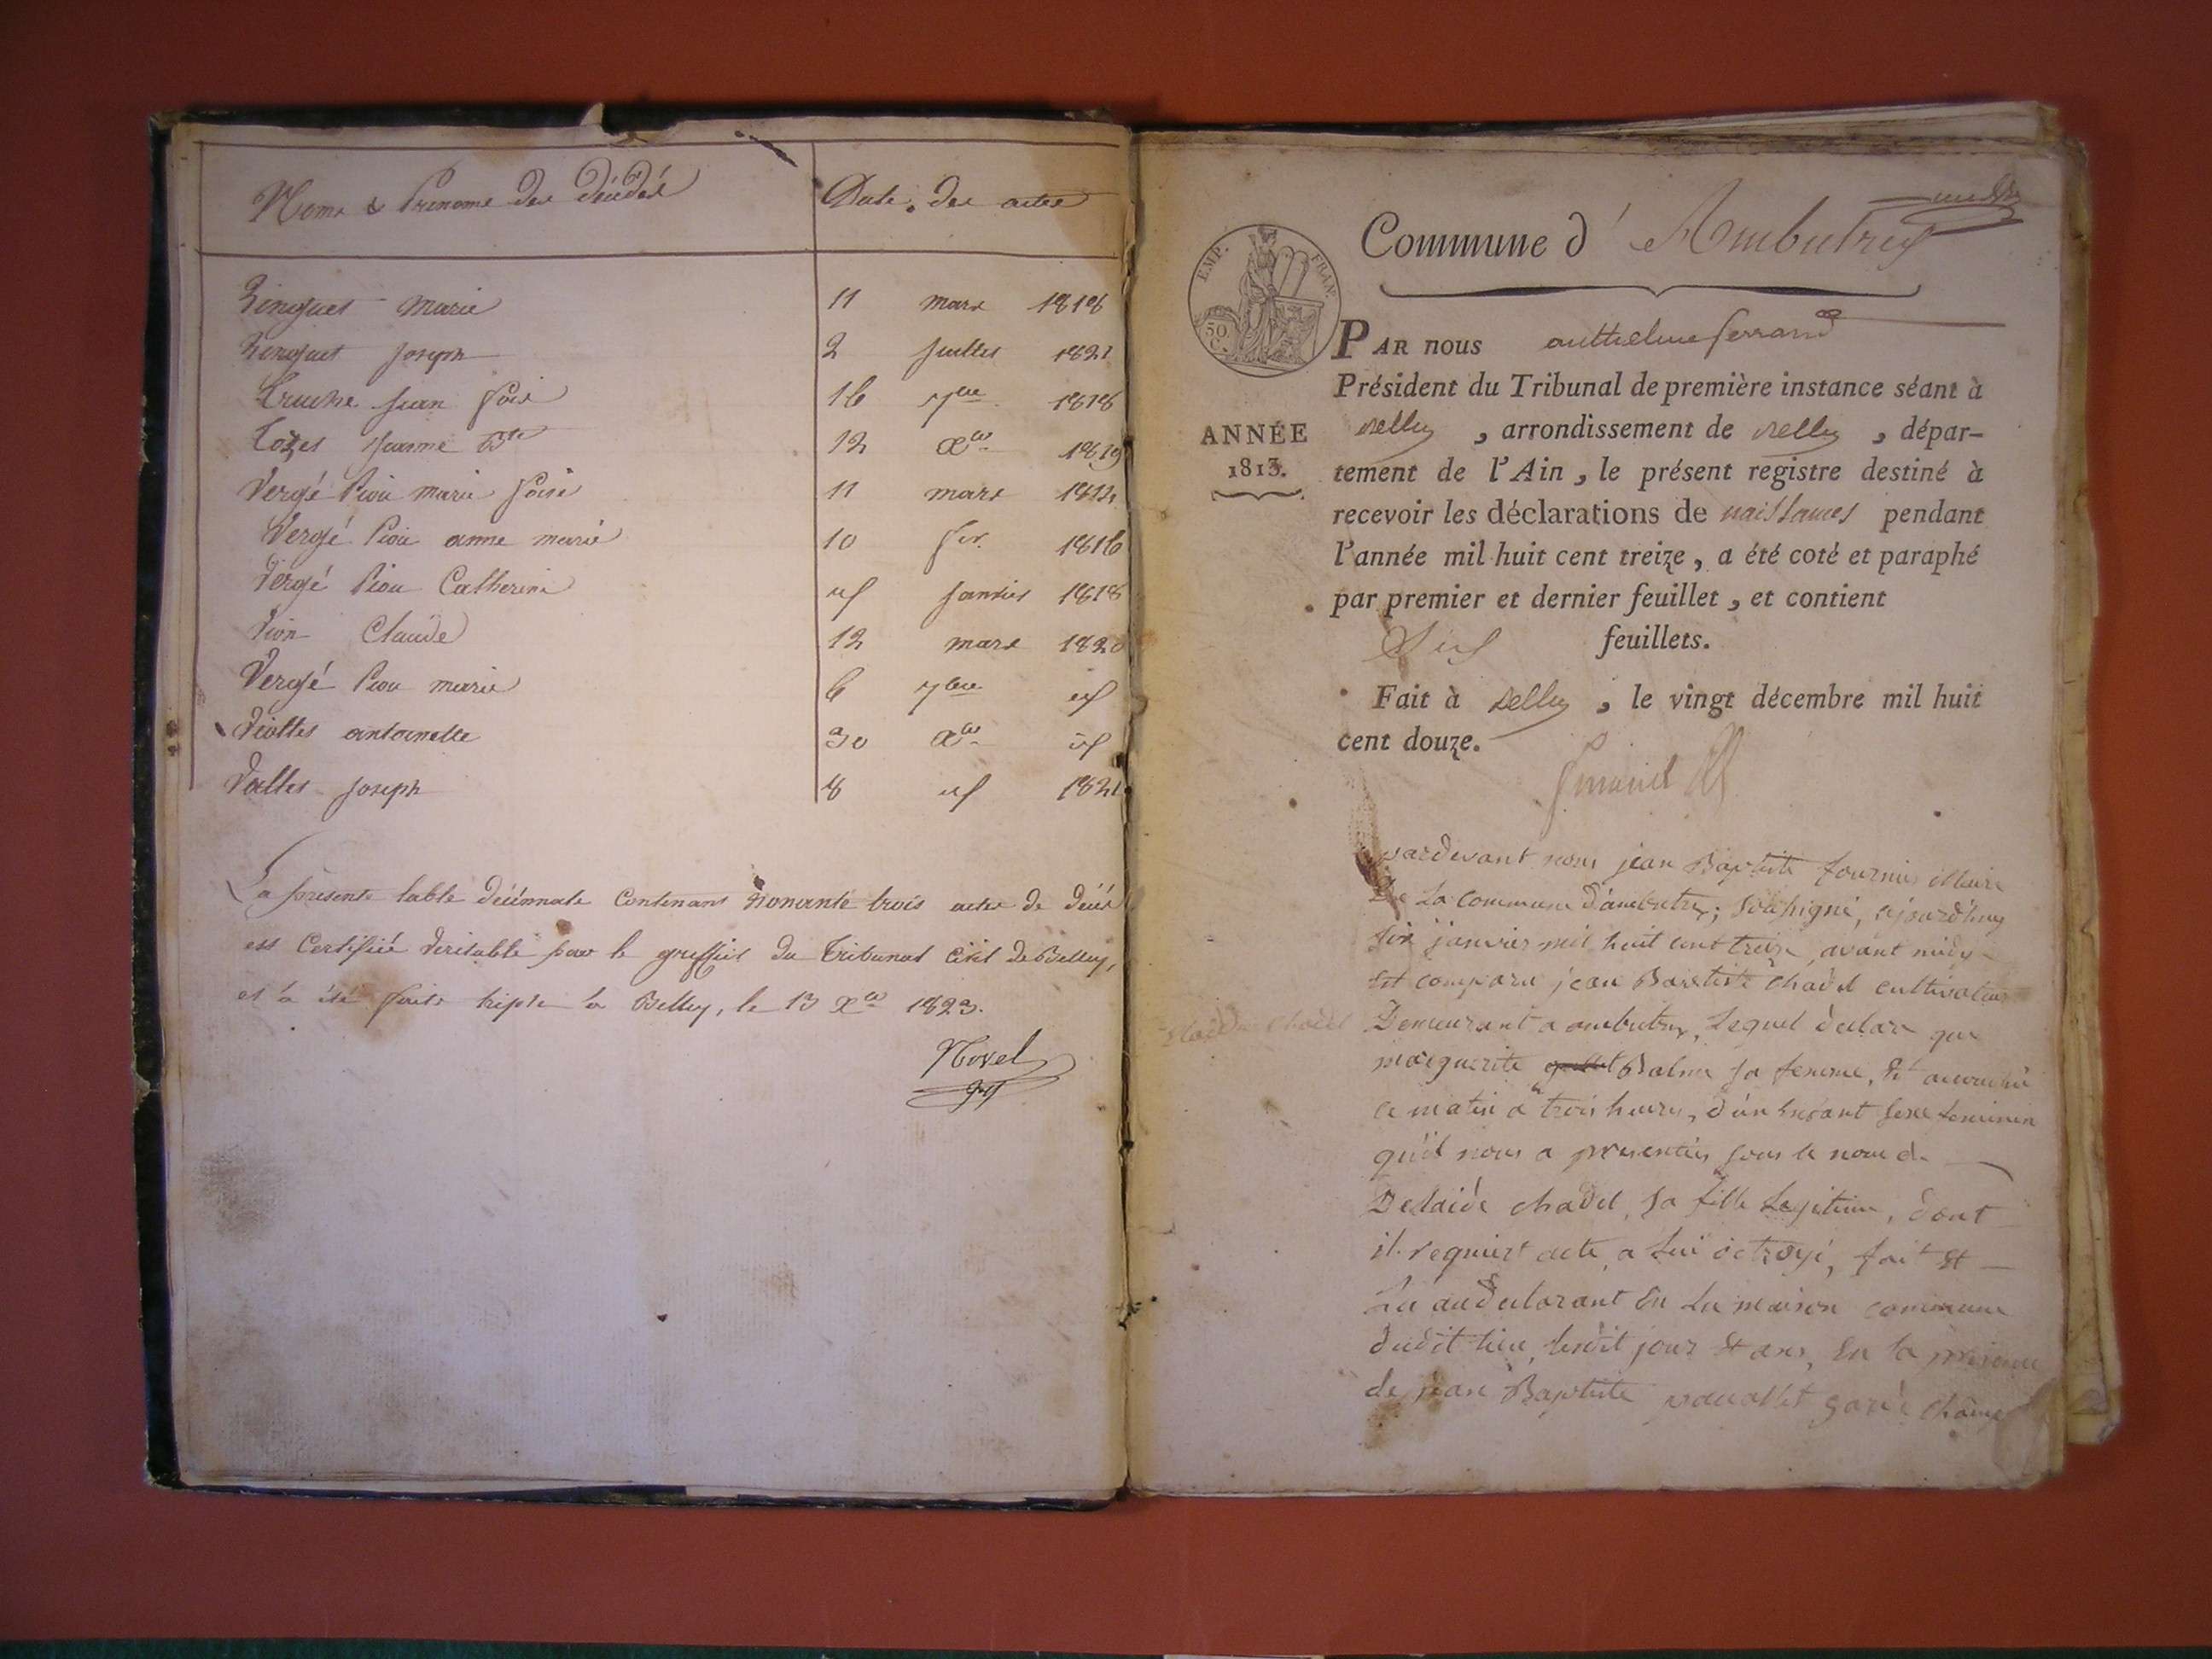 Noms & Prénoms des décédés Date des actes
Marie 11 mars 1818
Joseph 2 Juillet 1821
Jean 16 7bre 1818
12 Xbre 1819
Vergé Piou marie 11 mars 1814
Vergé Piou anne marie 10 fer. 1816
Vergé Piou Catherine id janvier 1818
Claude 12 mars 1820
Vergé Piou marie 6 7bre id
antoinette 30 Xbre id
Joseph 8 id 1821
La présente table décennale contenant nonante trois actes de décès
est certifiée véritable par le greffier du Tribunal Civil de Belley,
et a été faite triple à Belley, le 13 Xbre 1823.
Novel
EMP. FRAN.
50 C.
Commune d' Ambutrix
PAR nous anthelme ferrand
Président du Tribunal de première instance séant à
Belley , arrondissement de Belley , dépar-
ANNÉE
1813.
tement de l'Ain, le présent registre destiné à
recevoir les déclarations de naissances pendant
l'année mil huit cent treize, a été coté et paraphé
par premier et dernier feuillet, et contient
feuillets.
Fait à Belley , le vingt décembre mil huit
cent douze.
pardevant nous jean Baptiste fournier Maire
De La commune d'ambutrix, soussigné, ajourd'huy
Six janvier mil huit cent treize, avant midy
Est comparu jean Baptiste chadel cultivateur
Demeurant a ambutrix, Lequel declare que
marguerite Balme sa femme, Et accouchée
ce matin a trois heures, d'un Enfant sexe feminin
qu'il nous a presentés sous le nom de
Delaide chadel, sa fille Legitime, dont
il requiert acte, a lui octroyé, fait Et
Lu au declarant En La maison commune
dudit lieu, lesdit jour Et an, En la presence
de jean Baptiste garde champ